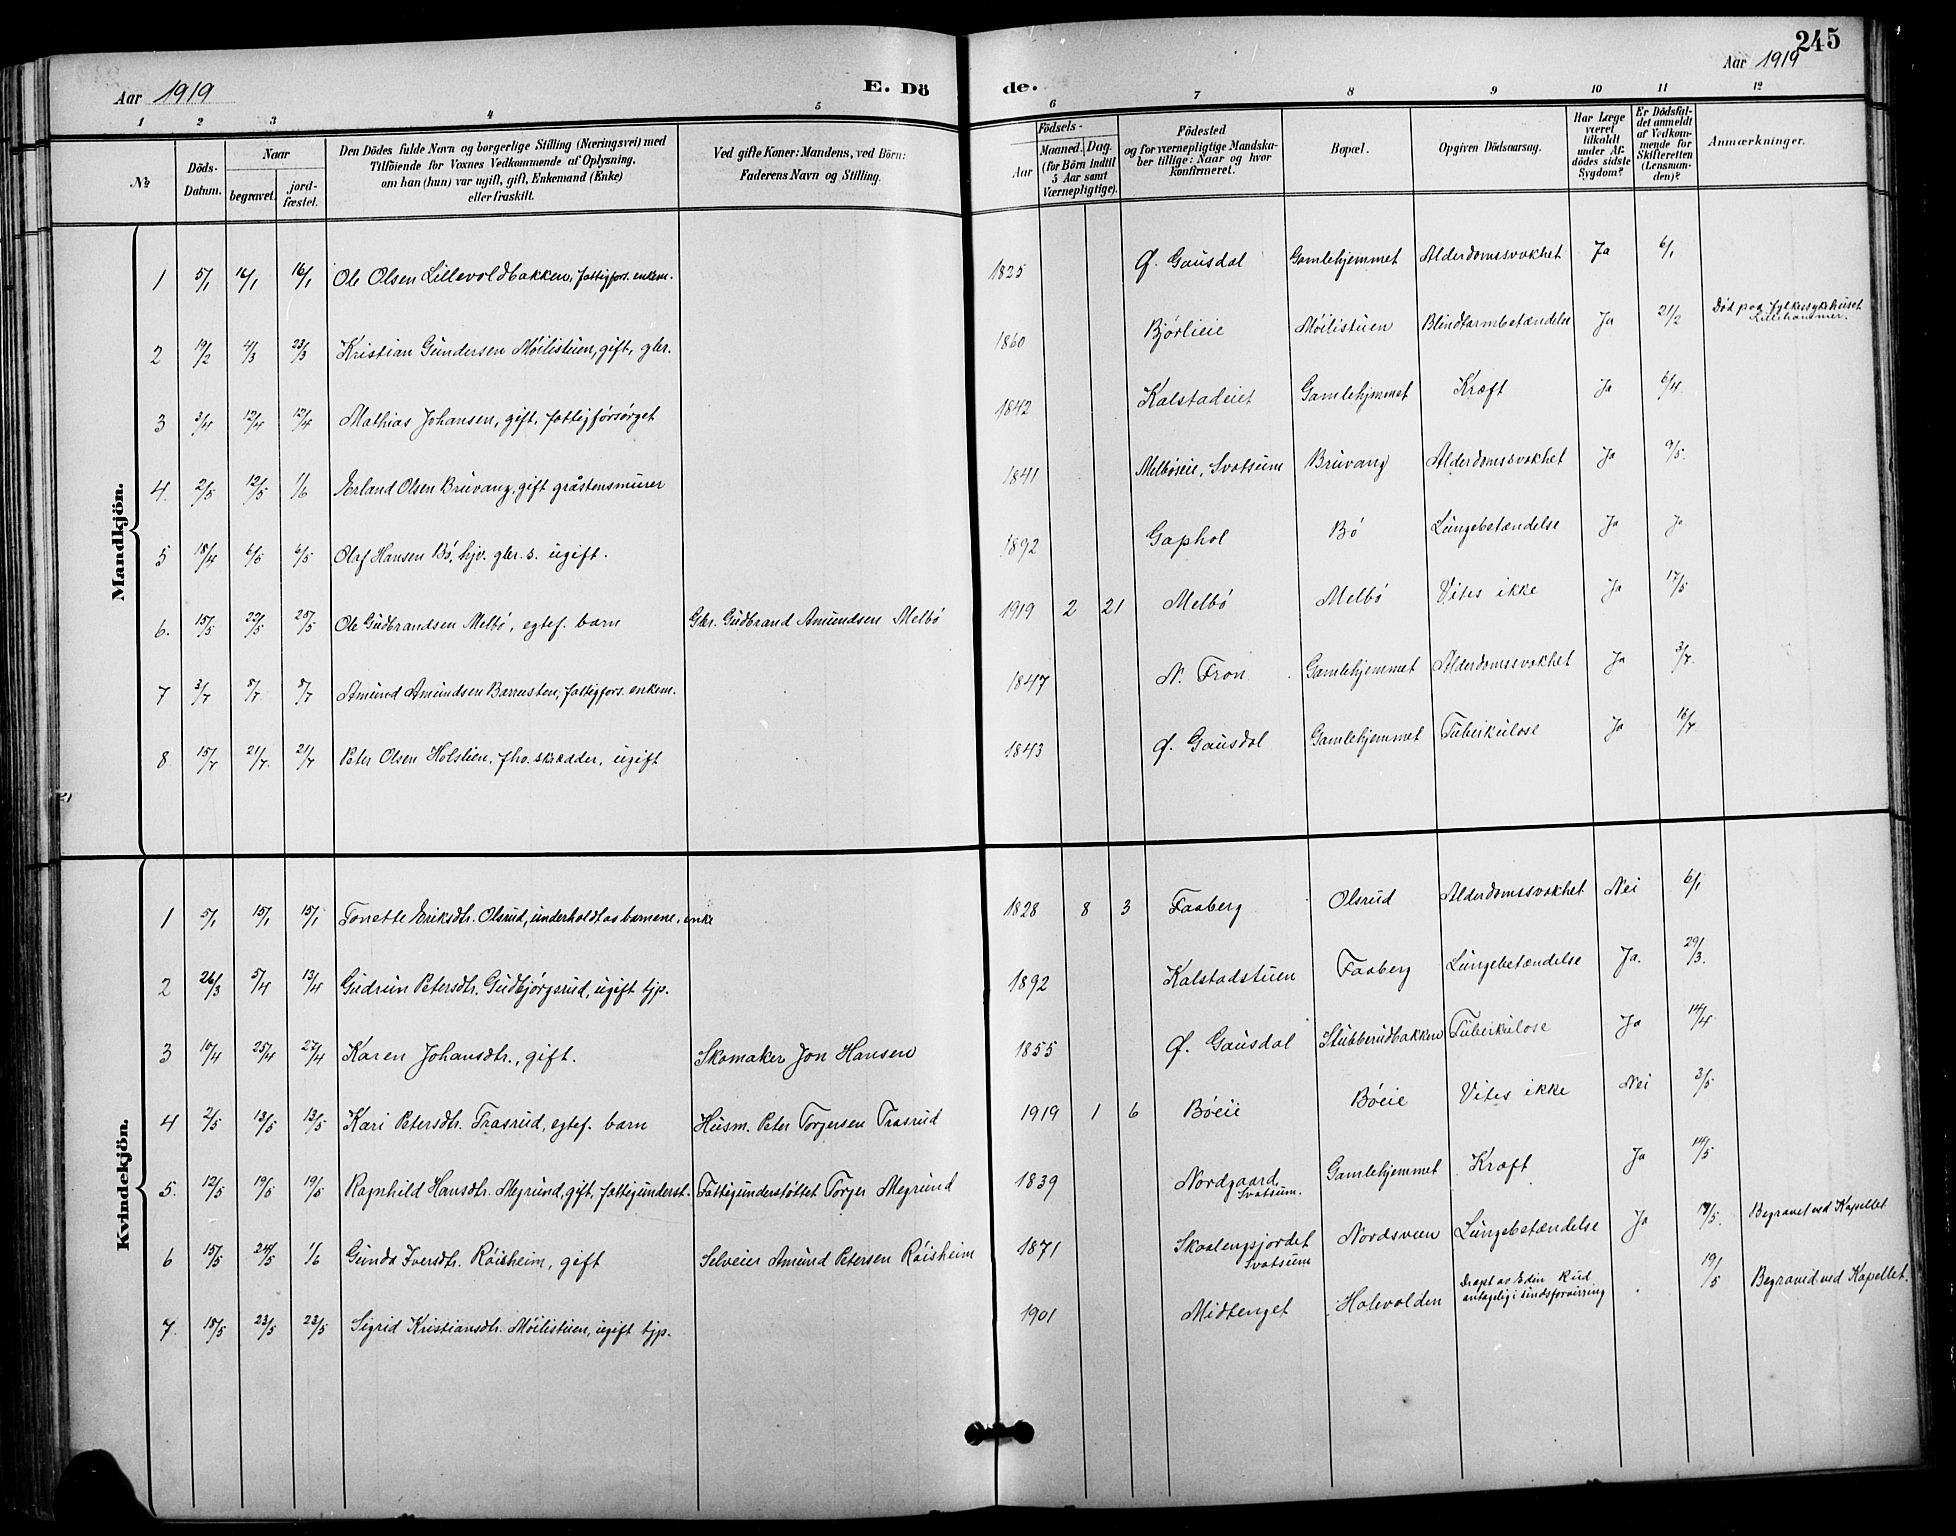 245
Aar 1919 E. Dö de. Aar 1919
1 2 3 4 5 6 7 8 9 10 11 12
№ Döds-Datum. Naar begravet. jord-fæstet. Den Dödes fulde Navn og borgerlige Stilling (Næringsvei) med Tilföiende for Voxnes Vedkommende af Oplysning, om han (hun) var ugift, gift, Enkemand (Enke) eller fraskilt. Ved gifte Koner: Mandens, ved Börn: Faderens Navn og Stilling. Födsels- Aar Maaned. Dag. (for Börn indtil 5 Aar samt Værnepligtige). Födested og for værnepligtige Mandskaber tillige: Naar og hvor konfirmeret. Bopæl. Opgiven Dödsaarsag. Har Læge været tilkaldt under Afdödes sidste Sygdom? Er Dödsfaldet anmeldt af Vedkommende for Skifteretten (Lensmanden)? Anmærkninger.
Mandkjön.
1 5/1 16/1 16/1 Ole Olsen Lillevoldbakken, fattigfors. enkem. 1825 Ø. Gausdal Gamlehjemmet Alderdomssvakhet Ja 6/1
2 19/2 4/3 23/3 Kristian Gundersen Möilistuen, gift, gbr. 1860 Bjørlieie Möilistuen Blindtarmbetændelse Ja 21/2 Död paa fylkessykehuset Lillehammer.
3 3/4 12/4 12/4 Mathias Johansen, gift, fattigforsørget 1842 Kalstadeiet Gamlehjemmet Kræft Ja 6/4.
4. 2/5 12/5 1/6 Erland Olsen Bruvang, gift gråstensmurer 1841 Melbøseie, Svatsum Bruvang Alderdomssvakhet Ja 9/5.
5 18/4 6/5 6/5 Olaf Hansen Bö, hjv. gbr. s. ugift. 1892 Gaphol Bö Lungebetændelse Ja Ja
6. 15/5 22/5 25/5 Ole Gudbrandsen Melbö, egtef. barn Gbr. Gudbrand Amundsen Melbö 1919 2 21 Melbö Melbö Vites ikke Ja 17/5
7 3/7 8/7 8/7 Amund Amundsen Barrusten, fattigfors. enkem. 1847 N. Fron Gamlehjemmet Alderdomssvakhet Ja 3/7.
8 15/7 21/7. 21/7 Peter Olsen Holslien, fhv. skrædder, ugift 1843 Ø. Gausdal Gamlehjemmet Tuberkulose Ja 16/7.
Kvindekjön.
1 5/1 15/1 15/1 Tonette Eriksdtr. Olsrud, underholdt av barnene, enke 1828 8 3 Faaberg Olsrud Alderdomssvakhet Nei 6/1
2 26/3 5/4 13/4 Gudrun Petersdtr. Gudbjørgsrud, ugift tjp. 1892 Kalstadstuen Faaberg Lungebetændelse Ja. 29/3.
3 10/4 25/4 27/4 Karen Johansdtr., gift. Skomaker Jon Hansen 1855 Ø. Gausdal Stubberudbakken Tuberkulose Ja 14/4
4 2/5 13/5 13/5 Kari Petersdtr. Trasrud, egtef. barn Husm. Peter Torgersen Trasrud 1919 1 6 Böeie Böeie Vites ikke Nei 3/5
5. 12/5 19/5 19/5 Ragnhild Hansdtr. Megrund, gift, fattigunderst. Fattigunderstøttet Torger Megrund 1839 Nordgaard Svatsum. Gamlehjemmet Kræft Ja 14/5
6 15/5 24/5 1/6 Gunda Iversdtr. Röisheim, gift Selveier Amund Petersen Röisheim 1871 Skaalengsjordet Svatsum Nordsveen Lungebetændelse Ja 19/5. Begravet ved Kapellet
7. 18/5 23/5 23/5 Sigrid Kristiansdtr. Möilistuen, ugift tjp. 1901 Midtenget Holevolden Dræpt av Edin Rud antagelig i sindsforvirring 19/5 Begravid ved Kapellet.